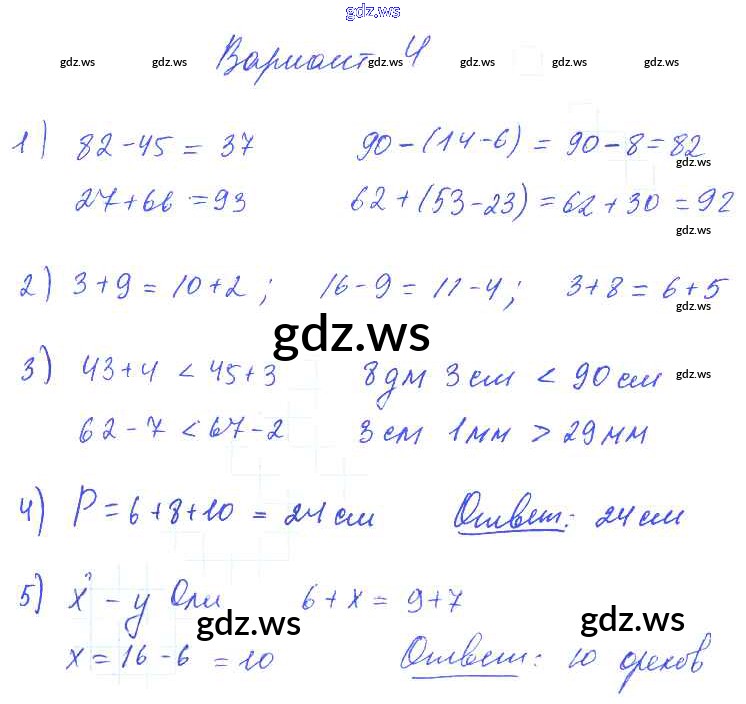 gdz.ws
Вариант 4
gdz.ws gdz.ws gdz.ws gdz.ws gdz.ws gdz.ws
1) 82-45 = 37 90-(14-6) = 90-8=82
gdz.ws
27+66=93 62+(53-23)=62+30=92
gdz.ws
2) 3+9=10+2; 16-9=11-4; 3+8=6+5
gdz.ws
gdz.ws
3) 43+4 < 45+3 8дм 3см < 90см
gdz.ws
62-7 < 67-2 3см 1мм > 29мм
4) P=6+8+10 = 24см Ответ: 24см
5) x - у Оли 6+x = 9+7
gdz.ws gdz.ws
x=16-6=10 Ответ: 10 орехов